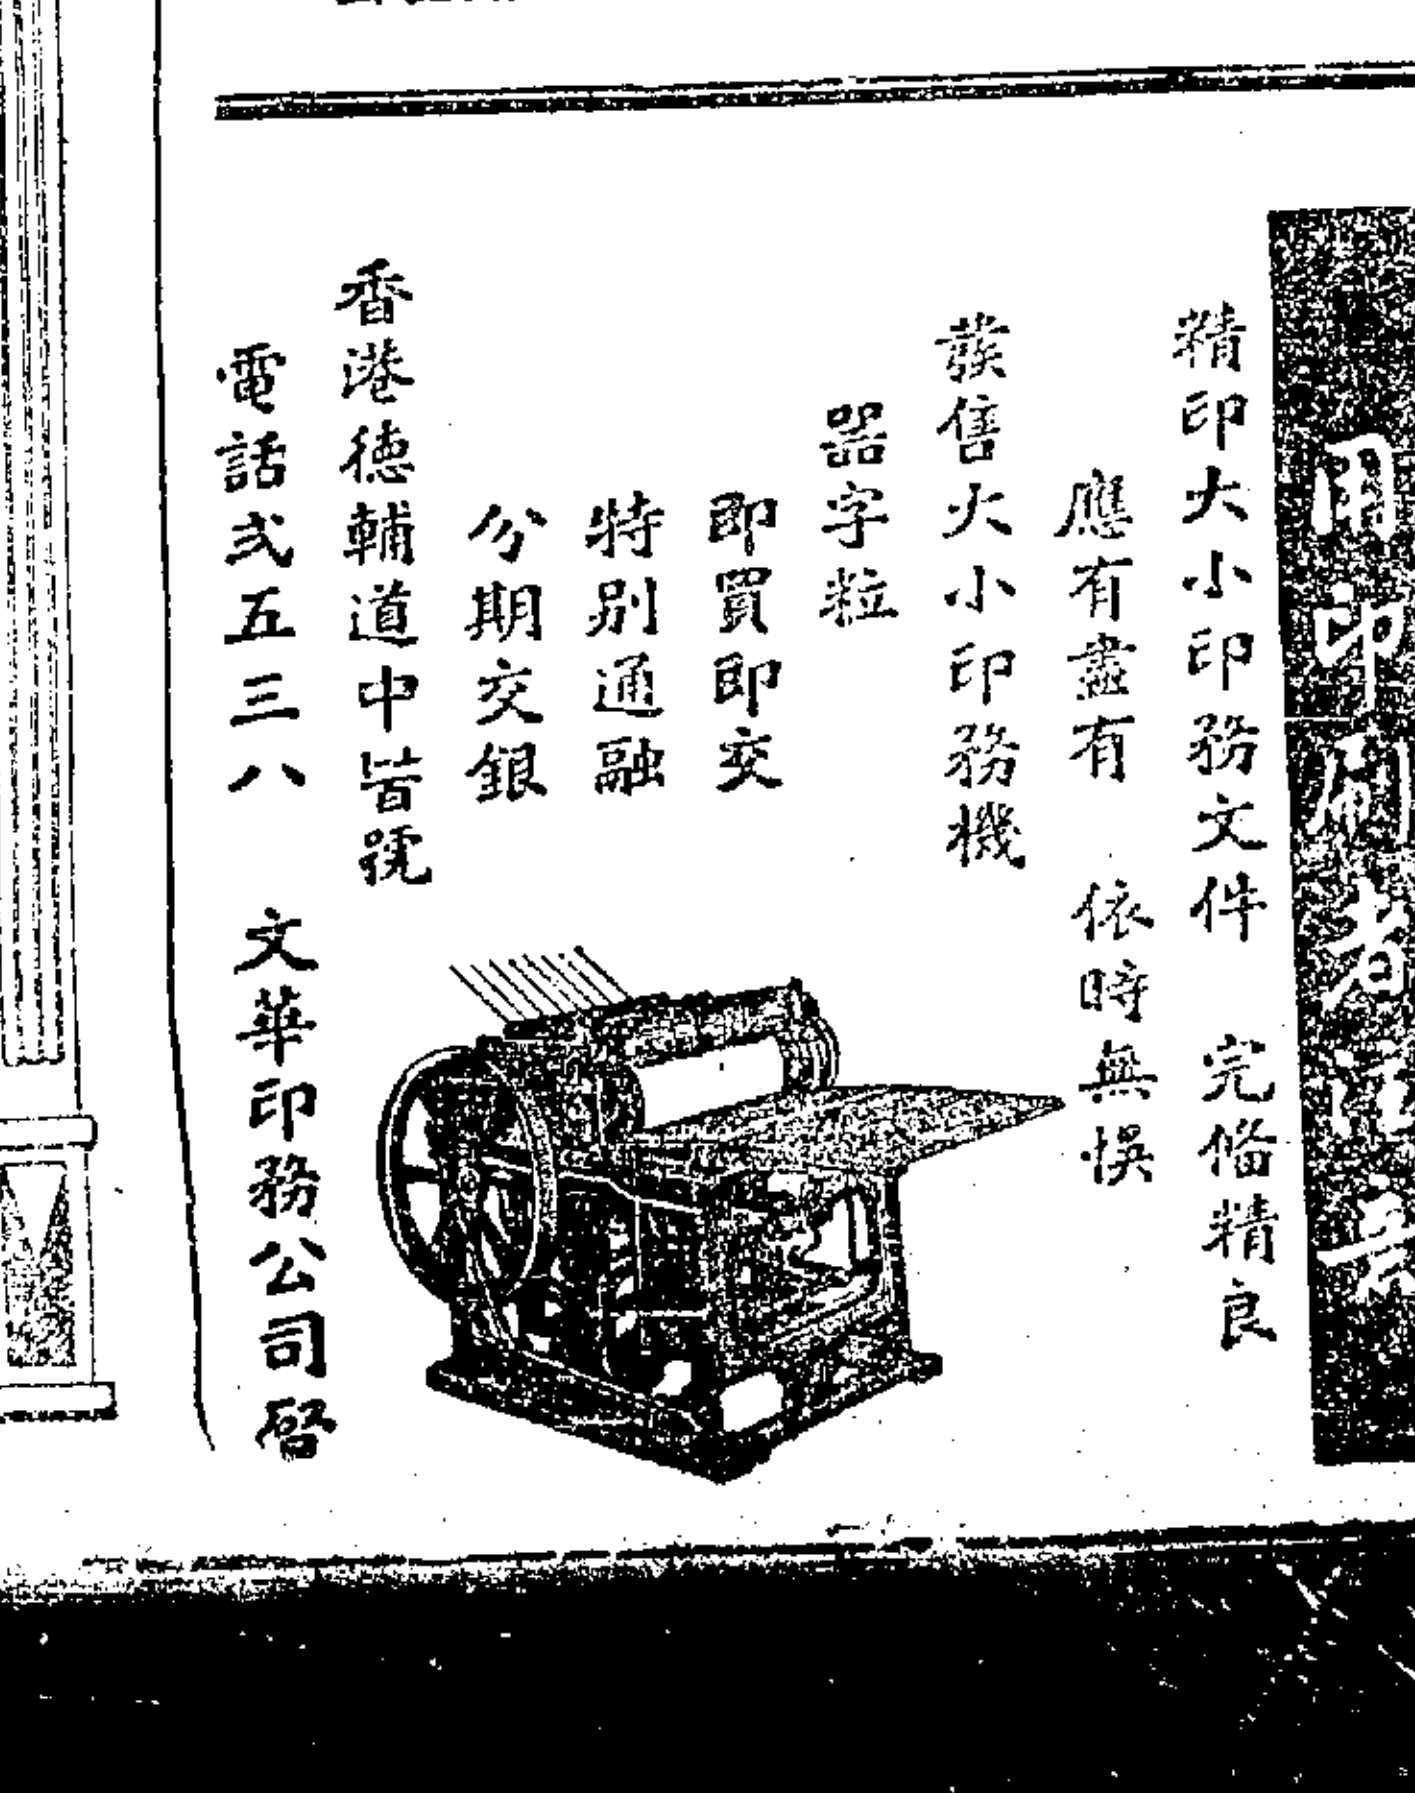 用印刷者注意
精印大小印務文件 完俻精良
應有盡有 依時無悞
發售大小印務機
器字粒
即買即交
特別通融
分期交銀
香港德輔道中号號
電話弍五三八 文華印務公司啓